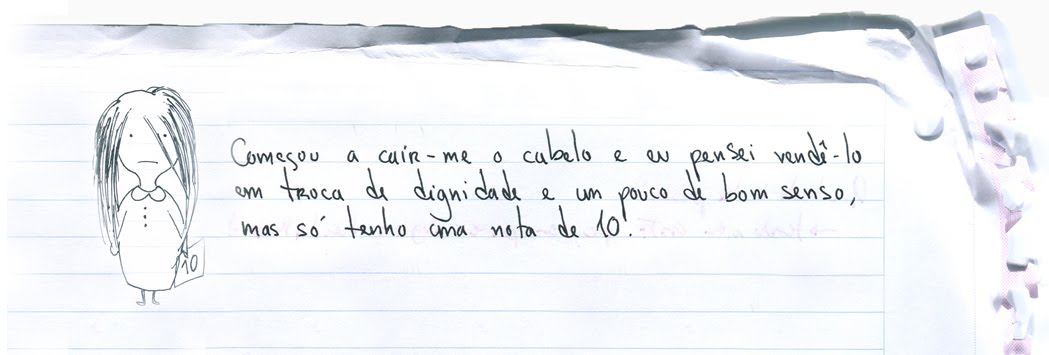 Começou a cair-me o cabelo e eu pensei vendê-lo
em troca de dignidade e um pouco de bom senso,
mas só tenho uma nota de 10.
10